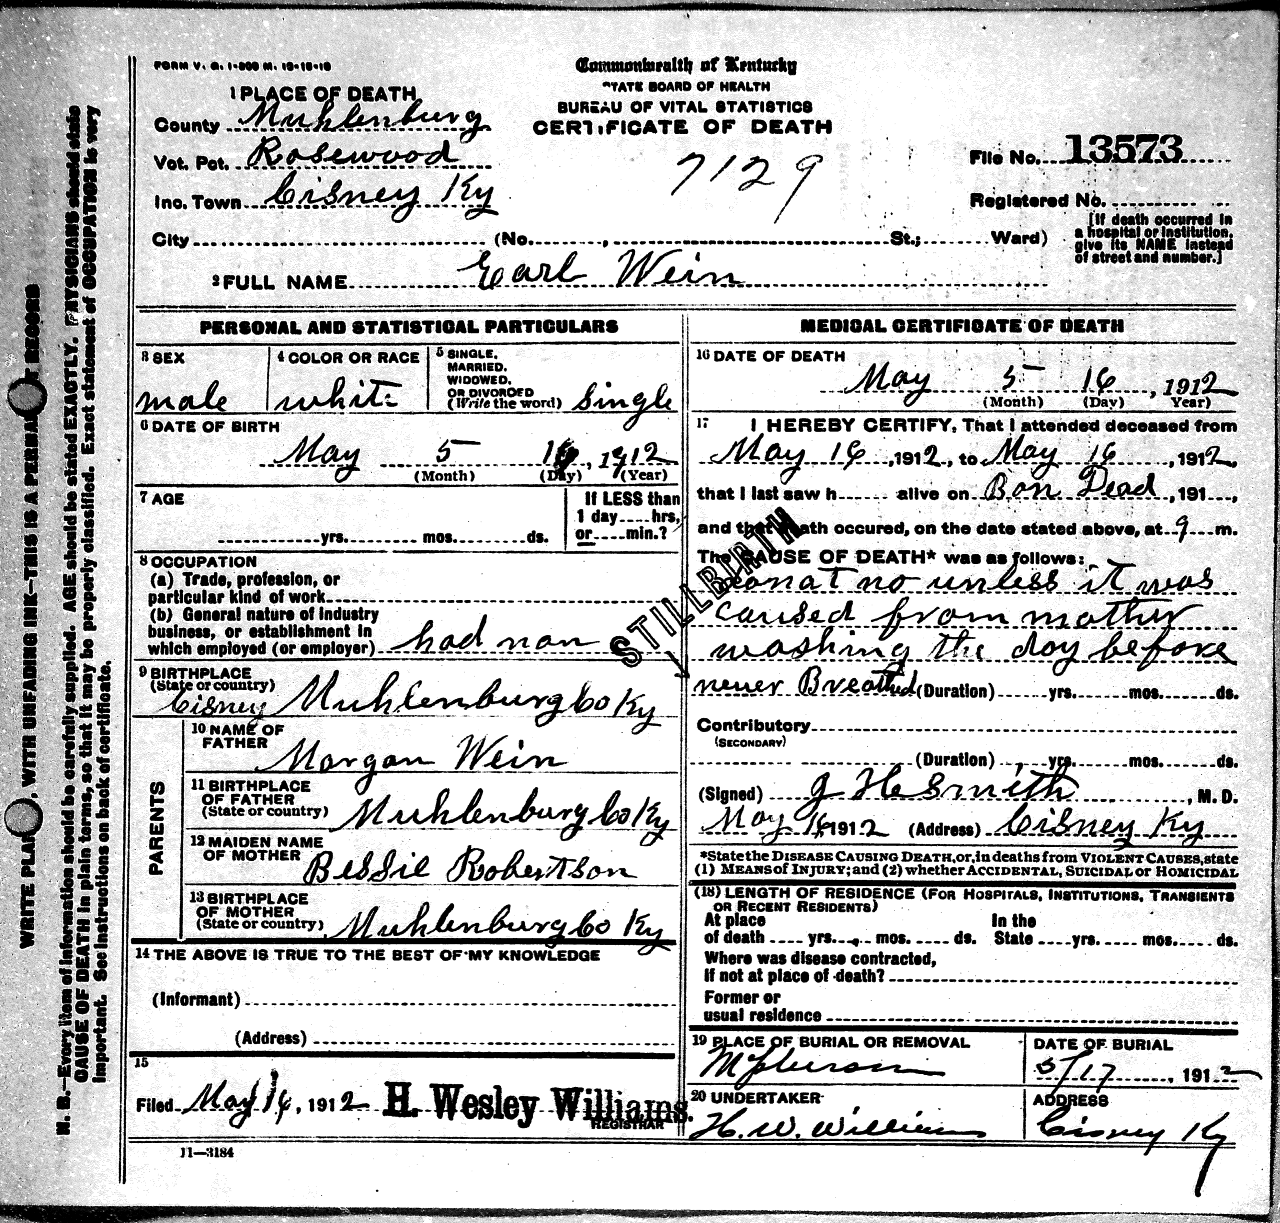 FORM V. S. 1-500 M. 10-10-10
Commonwealth of Kentucky
STATE BOARD OF HEALTH
BUREAU OF VITAL STATISTICS
CERTIFICATE OF DEATH
1 PLACE OF DEATH
County Muhlenburg
Vot. Pct. Rosewood
Inc. Town Cisney Ky
7129
File No. 13573
Registered No.
City (No. , St.; Ward)
[If death occurred in
a hospital or institution,
give its NAME instead
of street and number.]
2 FULL NAME Earl Wein
PERSONAL AND STATISTICAL PARTICULARS
3 SEX
male
4 COLOR OR RACE
white
5 SINGLE,
MARRIED,
WIDOWED,
OR DIVORCED
(Write the word) Single
6 DATE OF BIRTH
May 5 16, 1912
(Month) (Day) (Year)
7 AGE
yrs. mos. ds.
If LESS than
1 day hrs,
or min.?
8 OCCUPATION
(a) Trade, profession, or
particular kind of work
(b) General nature of industry
business, or establishment in
which employed (or employer) had non
9 BIRTHPLACE
(State or country)
Cisney Muhlenburg Co Ky
PARENTS
10 NAME OF
FATHER
Morgan Wein
11 BIRTHPLACE
OF FATHER
(State or country) Muhlenburg Co Ky
12 MAIDEN NAME
OF MOTHER
Bessie Robertson
13 BIRTHPLACE
OF MOTHER
(State or country) Muhlenburg Co Ky
14 THE ABOVE IS TRUE TO THE BEST OF MY KNOWLEDGE
(Informant)
(Address)
15
Filed May 16, 1912 H. Wesley Williams.
REGISTRAR
11—3184
MEDICAL CERTIFICATE OF DEATH
16 DATE OF DEATH
May 5 16, 1912
(Month) (Day) Year)
17 I HEREBY CERTIFY, That I attended deceased from
May 16, 1912, to May 16, 1912,
that I last saw h alive on Bon Dead, 191 ,
and that death occured, on the date stated above, at 9 m.
The CAUSE OF DEATH* was as follows:
STILLBIRTH
no unless it was
caused from mother
washing the day before
never Breathd (Duration) yrs. mos. ds.
Contributory
(SECONDARY)
(Duration) yrs. mos. ds.
(Signed) J H Smith, M. D.
May 16 1912 (Address) Cisney Ky
*State the DISEASE CAUSING DEATH, or, in deaths from VIOLENT CAUSES, state
(1) MEANS of INJURY; and (2) whether ACCIDENTAL, SUICIDAL or HOMICIDAL
(18) LENGTH OF RESIDENCE (FOR HOSPITALS, INSTITUTIONS, TRANSIENTS
OR RECENT RESIDENTS)
At place In the
of death yrs. mos. ds. State yrs. mos. ds.
Where was disease contracted,
if not at place of death?
Former or
usual residence
19 PLACE OF BURIAL OR REMOVAL
DATE OF BURIAL
5/17, 1912
20 UNDERTAKER
H. W. Williams
ADDRESS
Cisney Ky
WRITE PLAINLY, WITH UNFADING INK—THIS IS A PERMANENT RECORD
N. B.—Every item of information should be carefully supplied. AGE should be stated EXACTLY. PHYSICIANS should state
CAUSE OF DEATH in plain terms, so that it may be properly classified. Exact statement of OCCUPATION is very
important. See instructions on back of certificate.